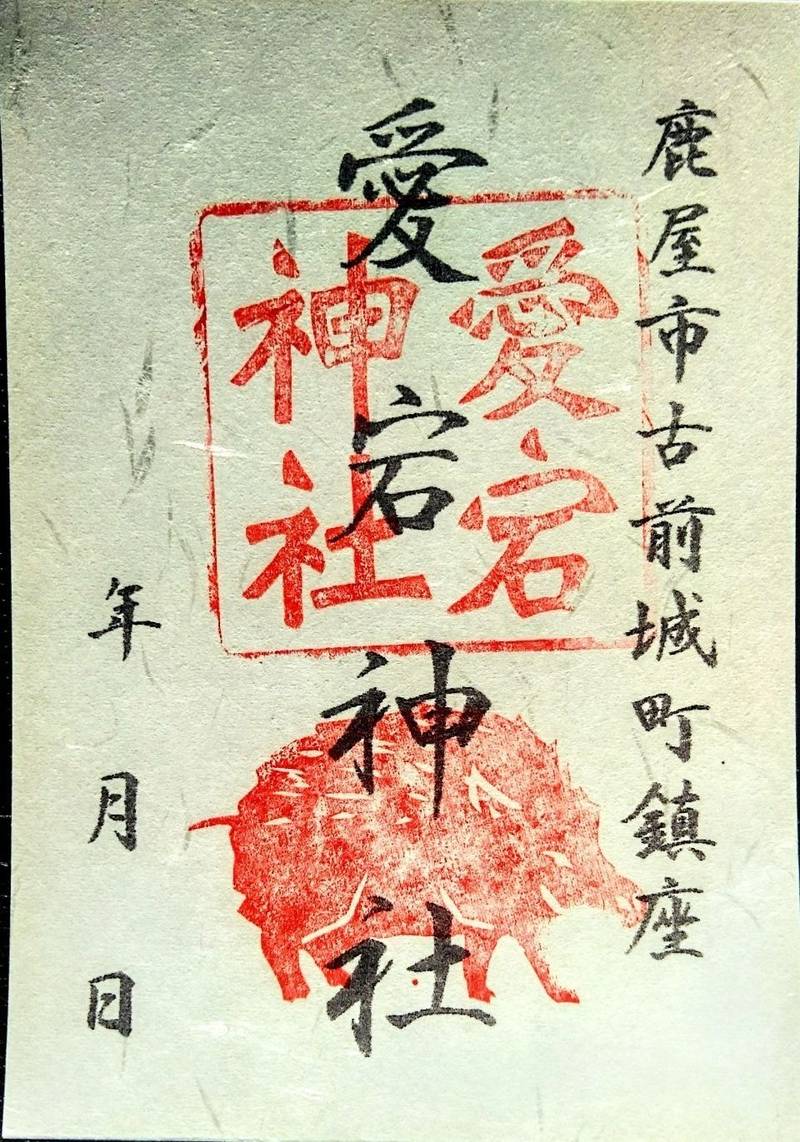 鹿屋市古前城町鎮座
愛宕神社
愛宕
神社
年 月 日